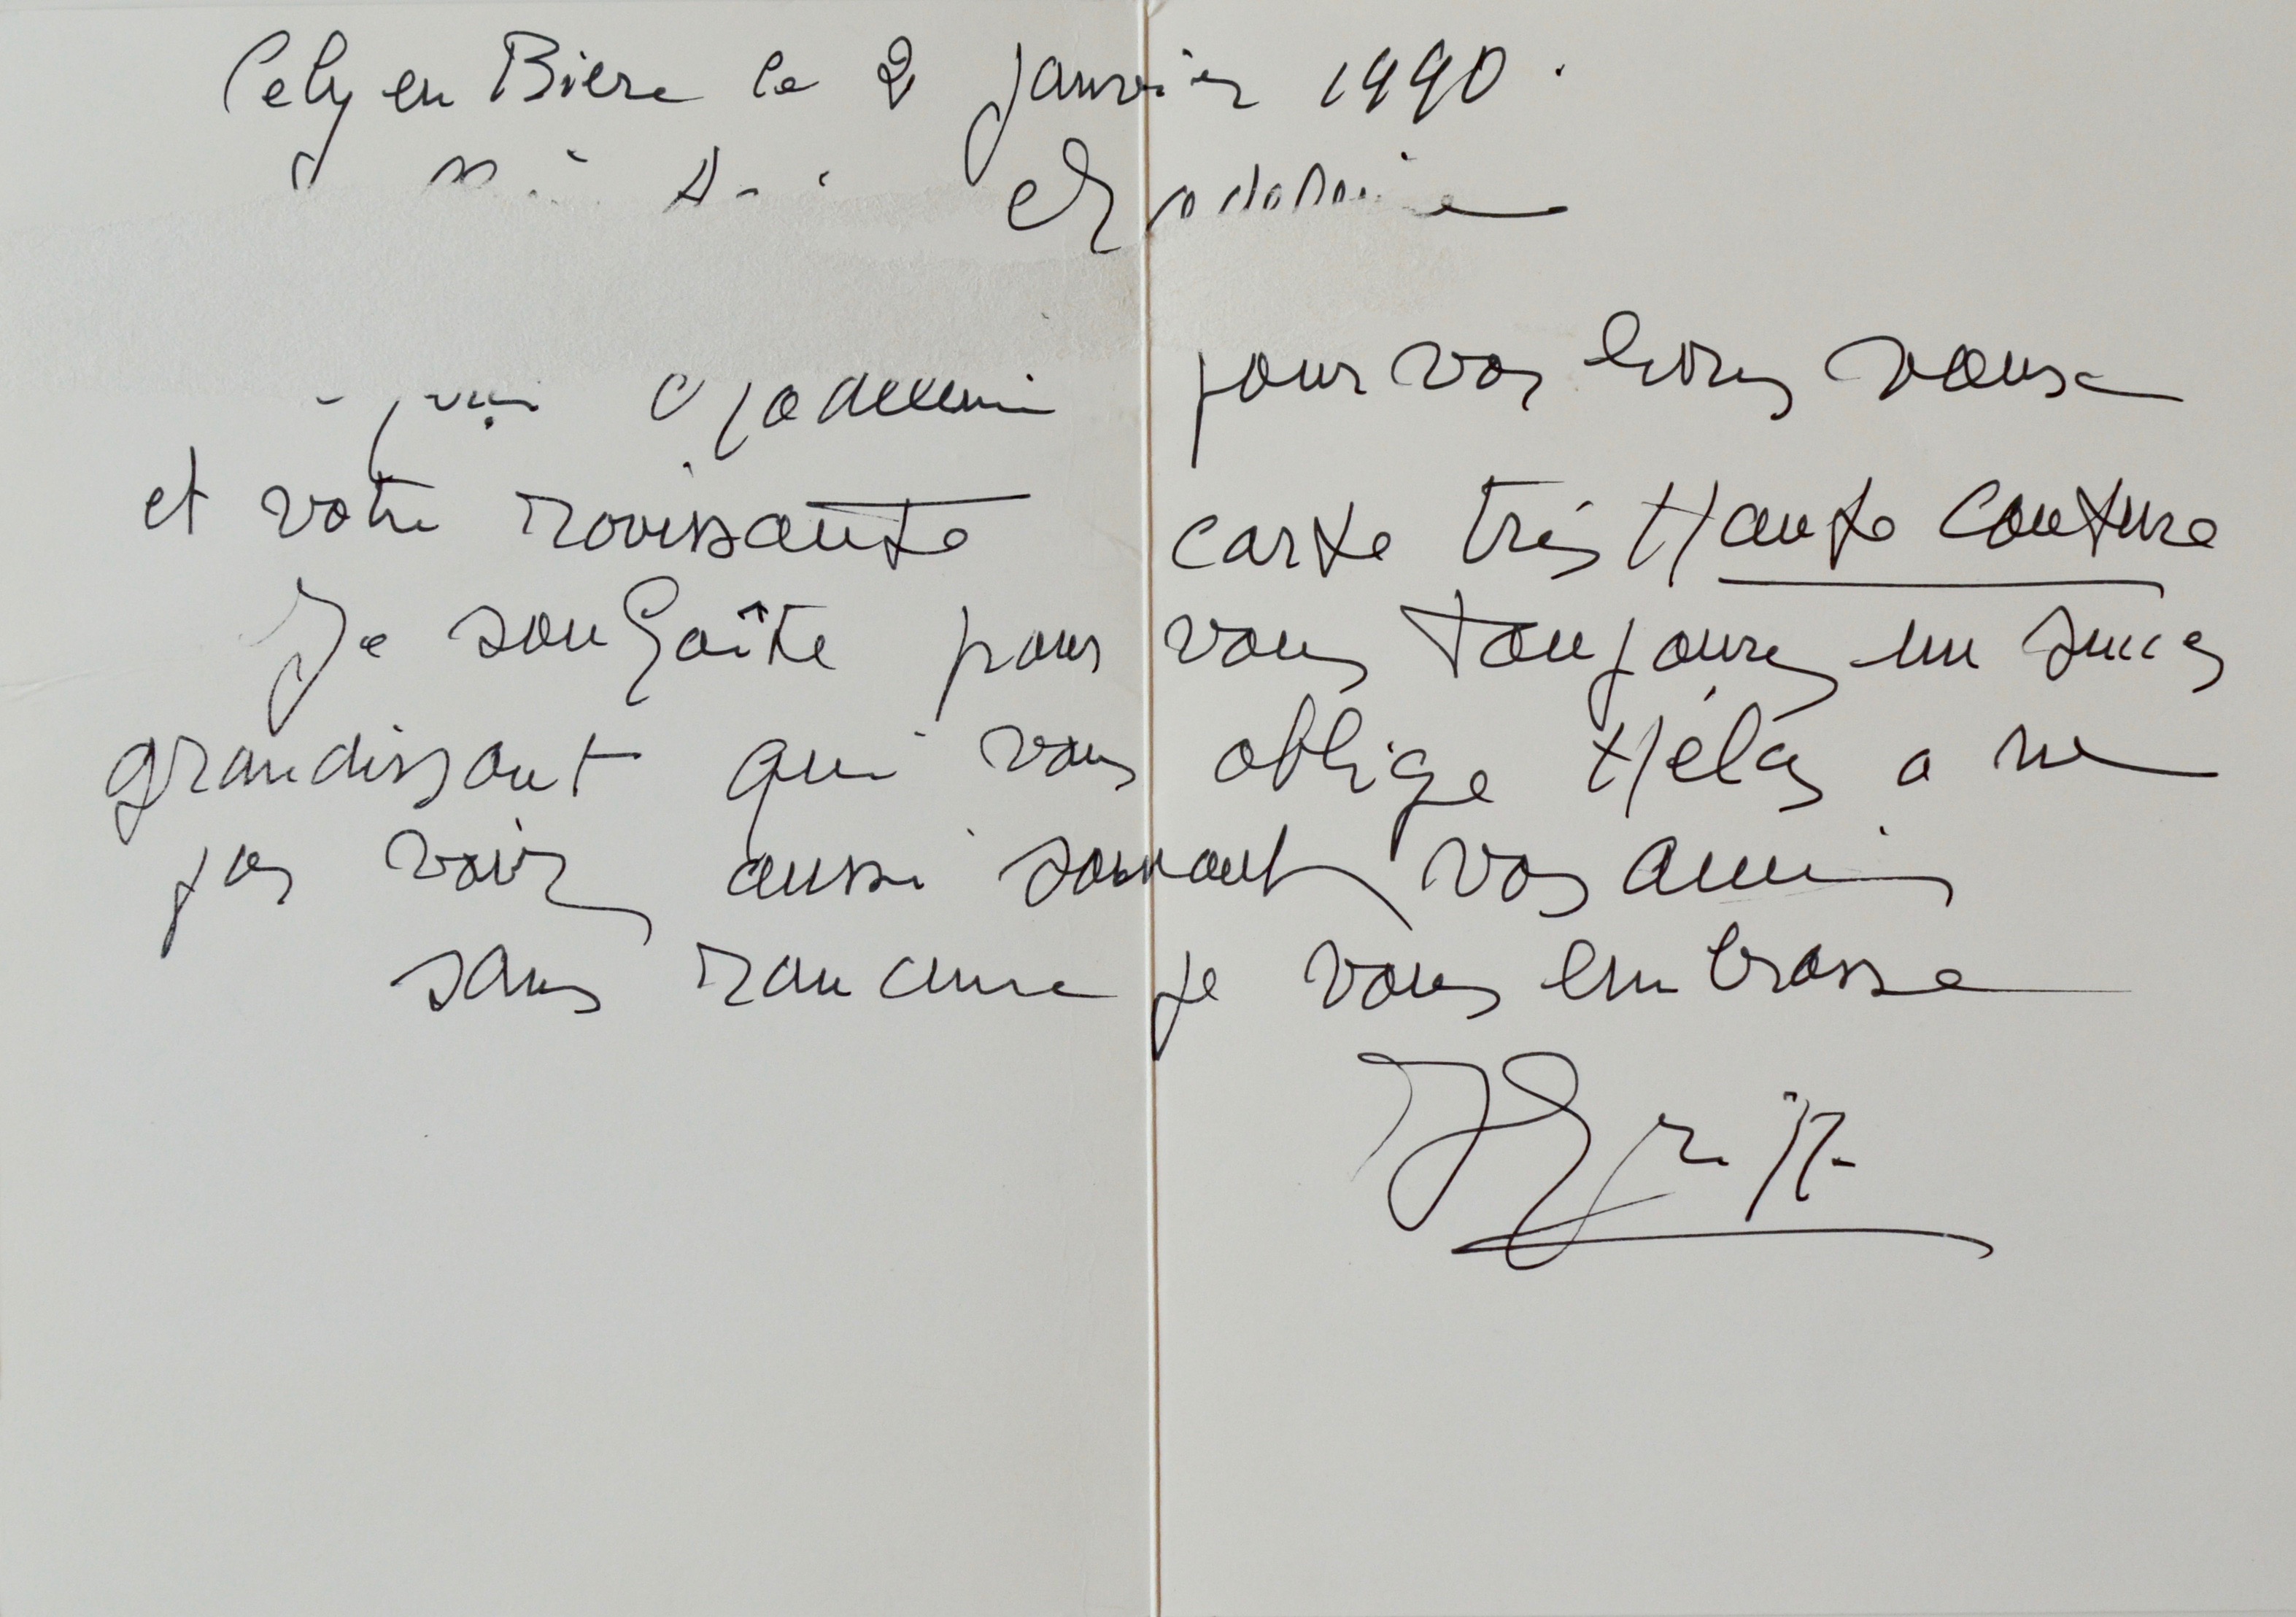 Cely en Biere le 2 Janvier 1990.
pour vos bons voeux
et votre ravissante carte très Haute Couture
Je souhaîte pour vous toujours un succes
grandissant qui vous oblige Hélas a ne
pas voir aussi souvent vos amis
sans rancune je vous embrasse